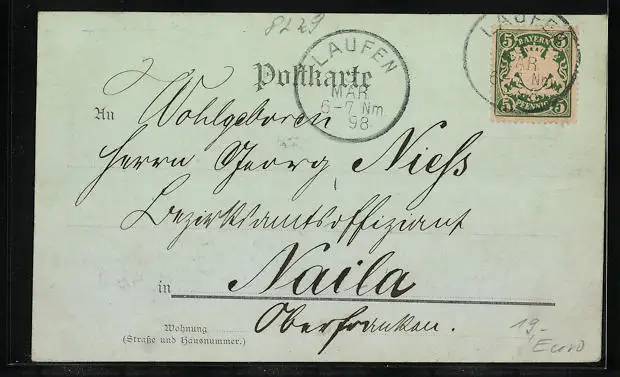 8229
Postkarte
LAUFEN
MÄR
6-7 Nm.
98
LAUFEN
MÄR
Nm.
5 BAYERN 5
5 PFENNIG 5
An Wohlgeboren
Herrn Georg Niess
Bezirksamtsoffiziant
in Naila
Wohnung
Oberfranken.
(Straße und Hausnummer.)
19.-
Euro